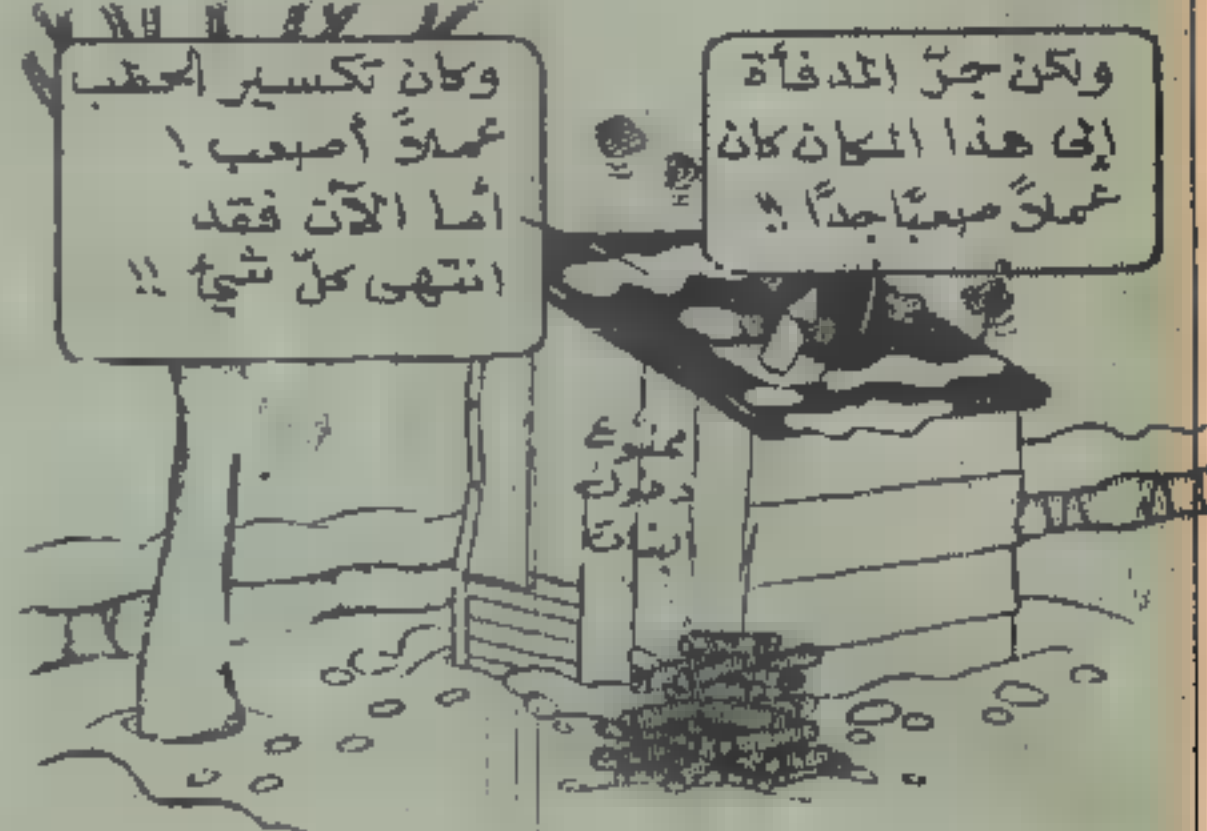 ولكن جرّ المدفأة
إلى هذا المكان كان
عملاً صعبًا جدًا !!
وكان تكسير الحطب
عملاً أصعب !
أما الآن فقد
انتهى كلّ شيْ !!
ممنوع
دخول
البنات